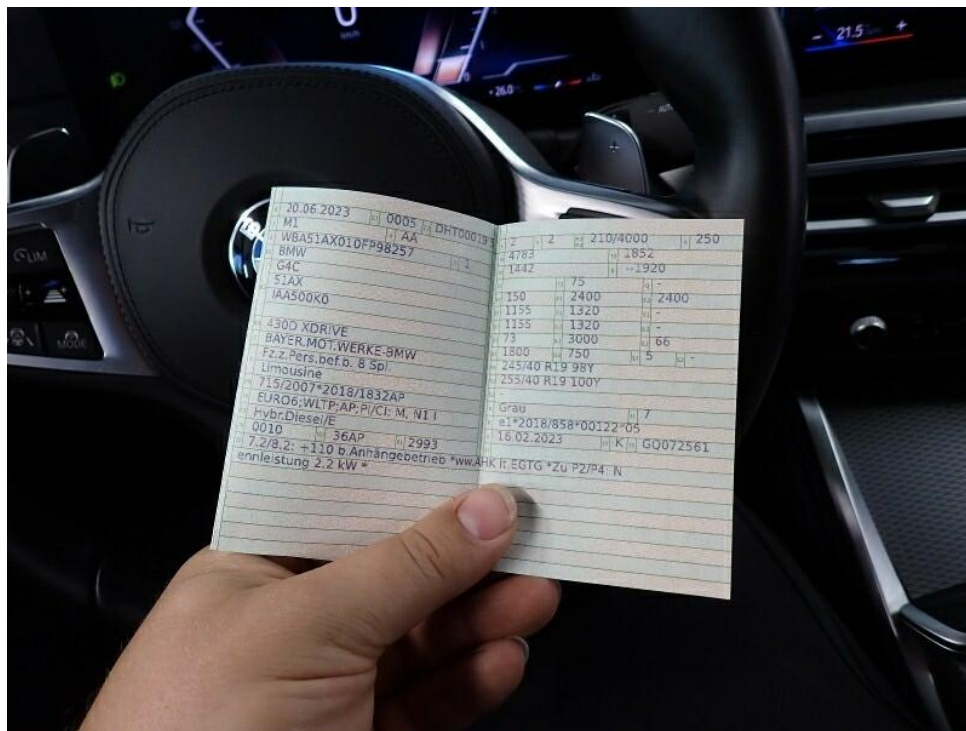 21.5
0
km/h
+26.0
LIM
MODE
20.06.2023 0005 DHT00019
M1 AA
WBA51AX010FP98257 1
BMW
G4C
51AX
IAA500K0
430D XDRIVE
BAYER.MOT.WERKE-BMW
Fz.z.Pers.bef.b. 8 Spl
Limousine
715/2007*2018/1832AP
EURO6;WLTP;AP;PI/CI; M, N1 I
Hybr.Diesel/E
0010 36AP 2993
7.2/8.2: +110 b.Anhängebetrieb *ww.AHK lt.EGTG *Zu P2/P4: N
ennleistung 2.2 kW *
2 2 210/4000 250
4783 1852
1442 --1920
75 -
150 2400 2400
1155 1320 -
1155 1320 -
73 3000 66
1800 750 5 -
245/40 R19 98Y
255/40 R19 100Y
-
Grau 7
e1*2018/858*00122*05
16.02.2023 K GQ072561